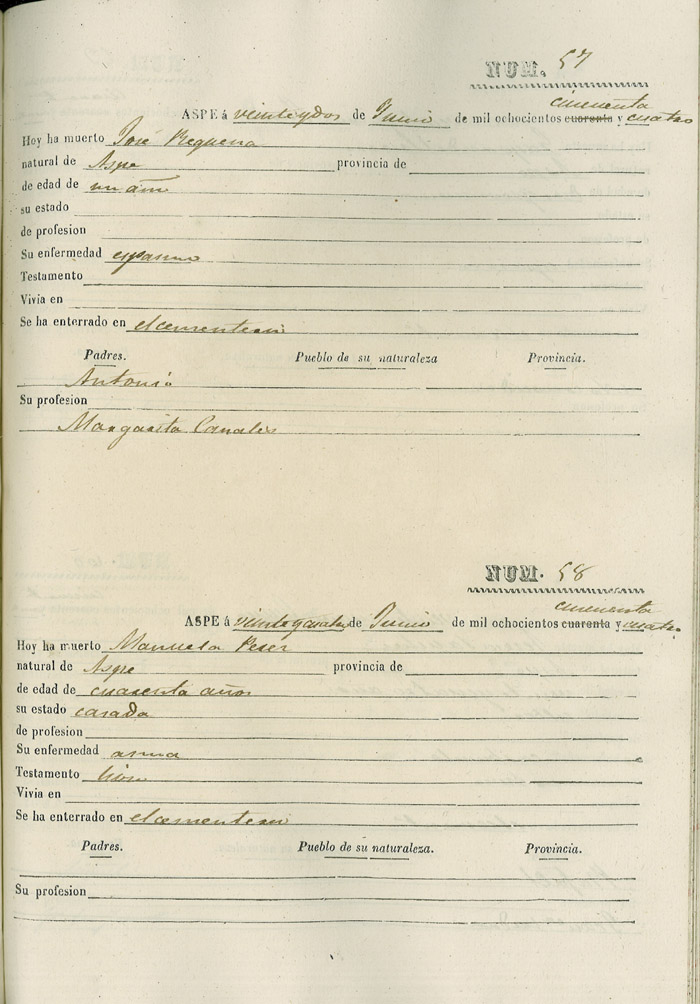 NUM. 57
cincuenta
ASPE á veinte y dos de Junio de mil ochocientos cuarenta y cuatro
Hoy ha muerto José Requena
natural de Aspe provincia de
de edad de un año
su estado
de profesion
Su enfermedad espasmo
Testamento
Vivia en
Se ha enterrado en el cementerio
Padres. Pueblo de su naturaleza Provincia.
Antonio
Su profesion
Margarita Canales
NUM. 58
cincuenta
ASPE á veinte y cuatro de Junio de mil ochocientos cuarenta y cuatro
Hoy ha muerto Manuela
natural de Aspe provincia de
de edad de cuarenta años
su estado casada
de profesion
Su enfermedad asma
Testamento
Vivia en
Se ha enterrado en el cementerio
Padres. Pueblo de su naturaleza. Provincia.
Su profesion